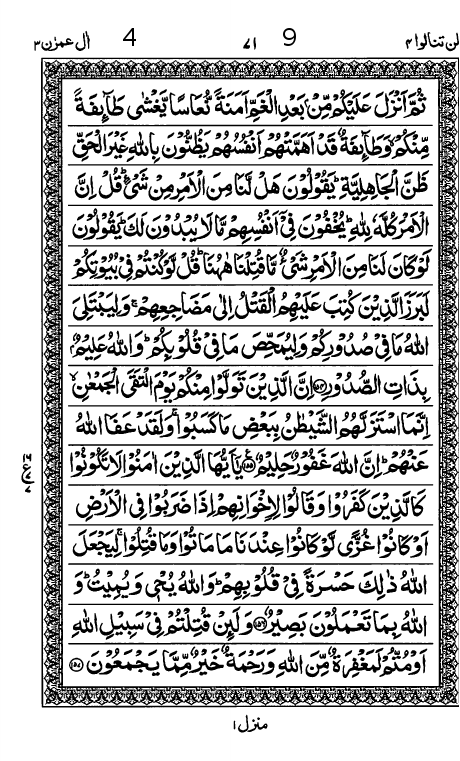 لن تنالوا ۴ 9 ۷۱ 4 اٰل عمرٰن ۳
ثُمَّ اَنْزَلَ عَلَيْكُمْ مِّنْۢ بَعْدِ الْغَمِّ اَمَنَةً نُّعَاسًا يَّغْشٰى طَآئِفَةً
مِّنْكُمْ وَطَآئِفَةٌ قَدْ اَهَمَّتْهُمْ اَنْفُسُهُمْ يَظُنُّوْنَ بِاللّٰهِ غَيْرَ الْحَقِّ
ظَنَّ الْجَاهِلِيَّةِ ؕ يَقُوْلُوْنَ هَلْ لَّنَا مِنَ الْاَمْرِ مِنْ شَىْءٍ ؕ قُلْ اِنَّ
الْاَمْرَ كُلَّهٗ لِلّٰهِ ؕ يُخْفُوْنَ فِىْۤ اَنْفُسِهِمْ مَّا لَا يُبْدُوْنَ لَكَ ؕ يَقُوْلُوْنَ
لَوْ كَانَ لَنَا مِنَ الْاَمْرِ شَىْءٌ مَّا قُتِلْنَا هٰهُنَا ؕ قُلْ لَّوْ كُنْتُمْ فِىْ بُيُوْتِكُمْ
لَبَرَزَ الَّذِيْنَ كُتِبَ عَلَيْهِمُ الْقَتْلُ اِلٰى مَضَاجِعِهِمْ ۚ وَلِيَبْتَلِىَ
اللّٰهُ مَا فِىْ صُدُوْرِكُمْ وَلِيُمَحِّصَ مَا فِىْ قُلُوْبِكُمْ ؕ وَاللّٰهُ عَلِيْمٌۢ
بِذَاتِ الصُّدُوْرِ ﴿۱۵۴﴾ اِنَّ الَّذِيْنَ تَوَلَّوْا مِنْكُمْ يَوْمَ الْتَقَى الْجَمْعٰنِ ۙ
اِنَّمَا اسْتَزَلَّهُمُ الشَّيْطٰنُ بِبَعْضِ مَا كَسَبُوْا ۚ وَلَقَدْ عَفَا اللّٰهُ
عَنْهُمْ ؕ اِنَّ اللّٰهَ غَفُوْرٌ حَلِيْمٌ ﴿۱۵۵﴾ يٰۤاَيُّهَا الَّذِيْنَ اٰمَنُوْا لَا تَكُوْنُوْا
كَالَّذِيْنَ كَفَرُوْا وَقَالُوْا لِاِخْوَانِهِمْ اِذَا ضَرَبُوْا فِى الْاَرْضِ
اَوْ كَانُوْا غُزًّى لَّوْ كَانُوْا عِنْدَنَا مَا مَاتُوْا وَمَا قُتِلُوْا ۚ لِيَجْعَلَ
اللّٰهُ ذٰلِكَ حَسْرَةً فِىْ قُلُوْبِهِمْ ؕ وَاللّٰهُ يُحْىٖ وَيُمِيْتُ ؕ وَ
اللّٰهُ بِمَا تَعْمَلُوْنَ بَصِيْرٌ ﴿۱۵۶﴾ وَلَئِنْ قُتِلْتُمْ فِىْ سَبِيْلِ اللّٰهِ
اَوْ مُتُّمْ لَمَغْفِرَةٌ مِّنَ اللّٰهِ وَرَحْمَةٌ خَيْرٌ مِّمَّا يَجْمَعُوْنَ ﴿۱۵۷﴾
منزل ۱